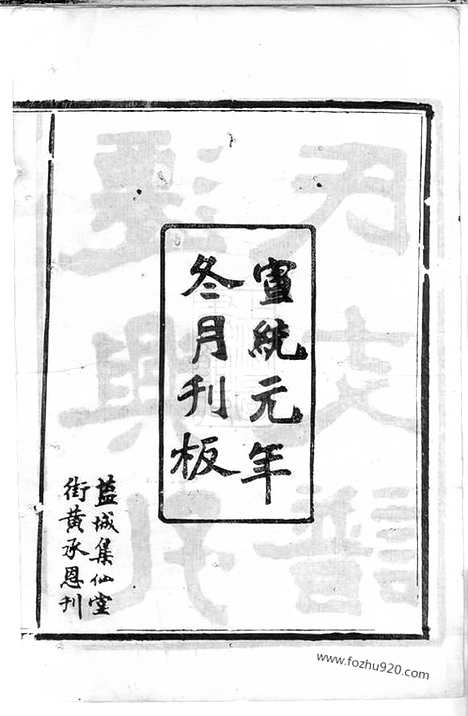 宣統元年
冬月刋板
盐城集仙堂
街黄承恩刊
www.fozhu920.com